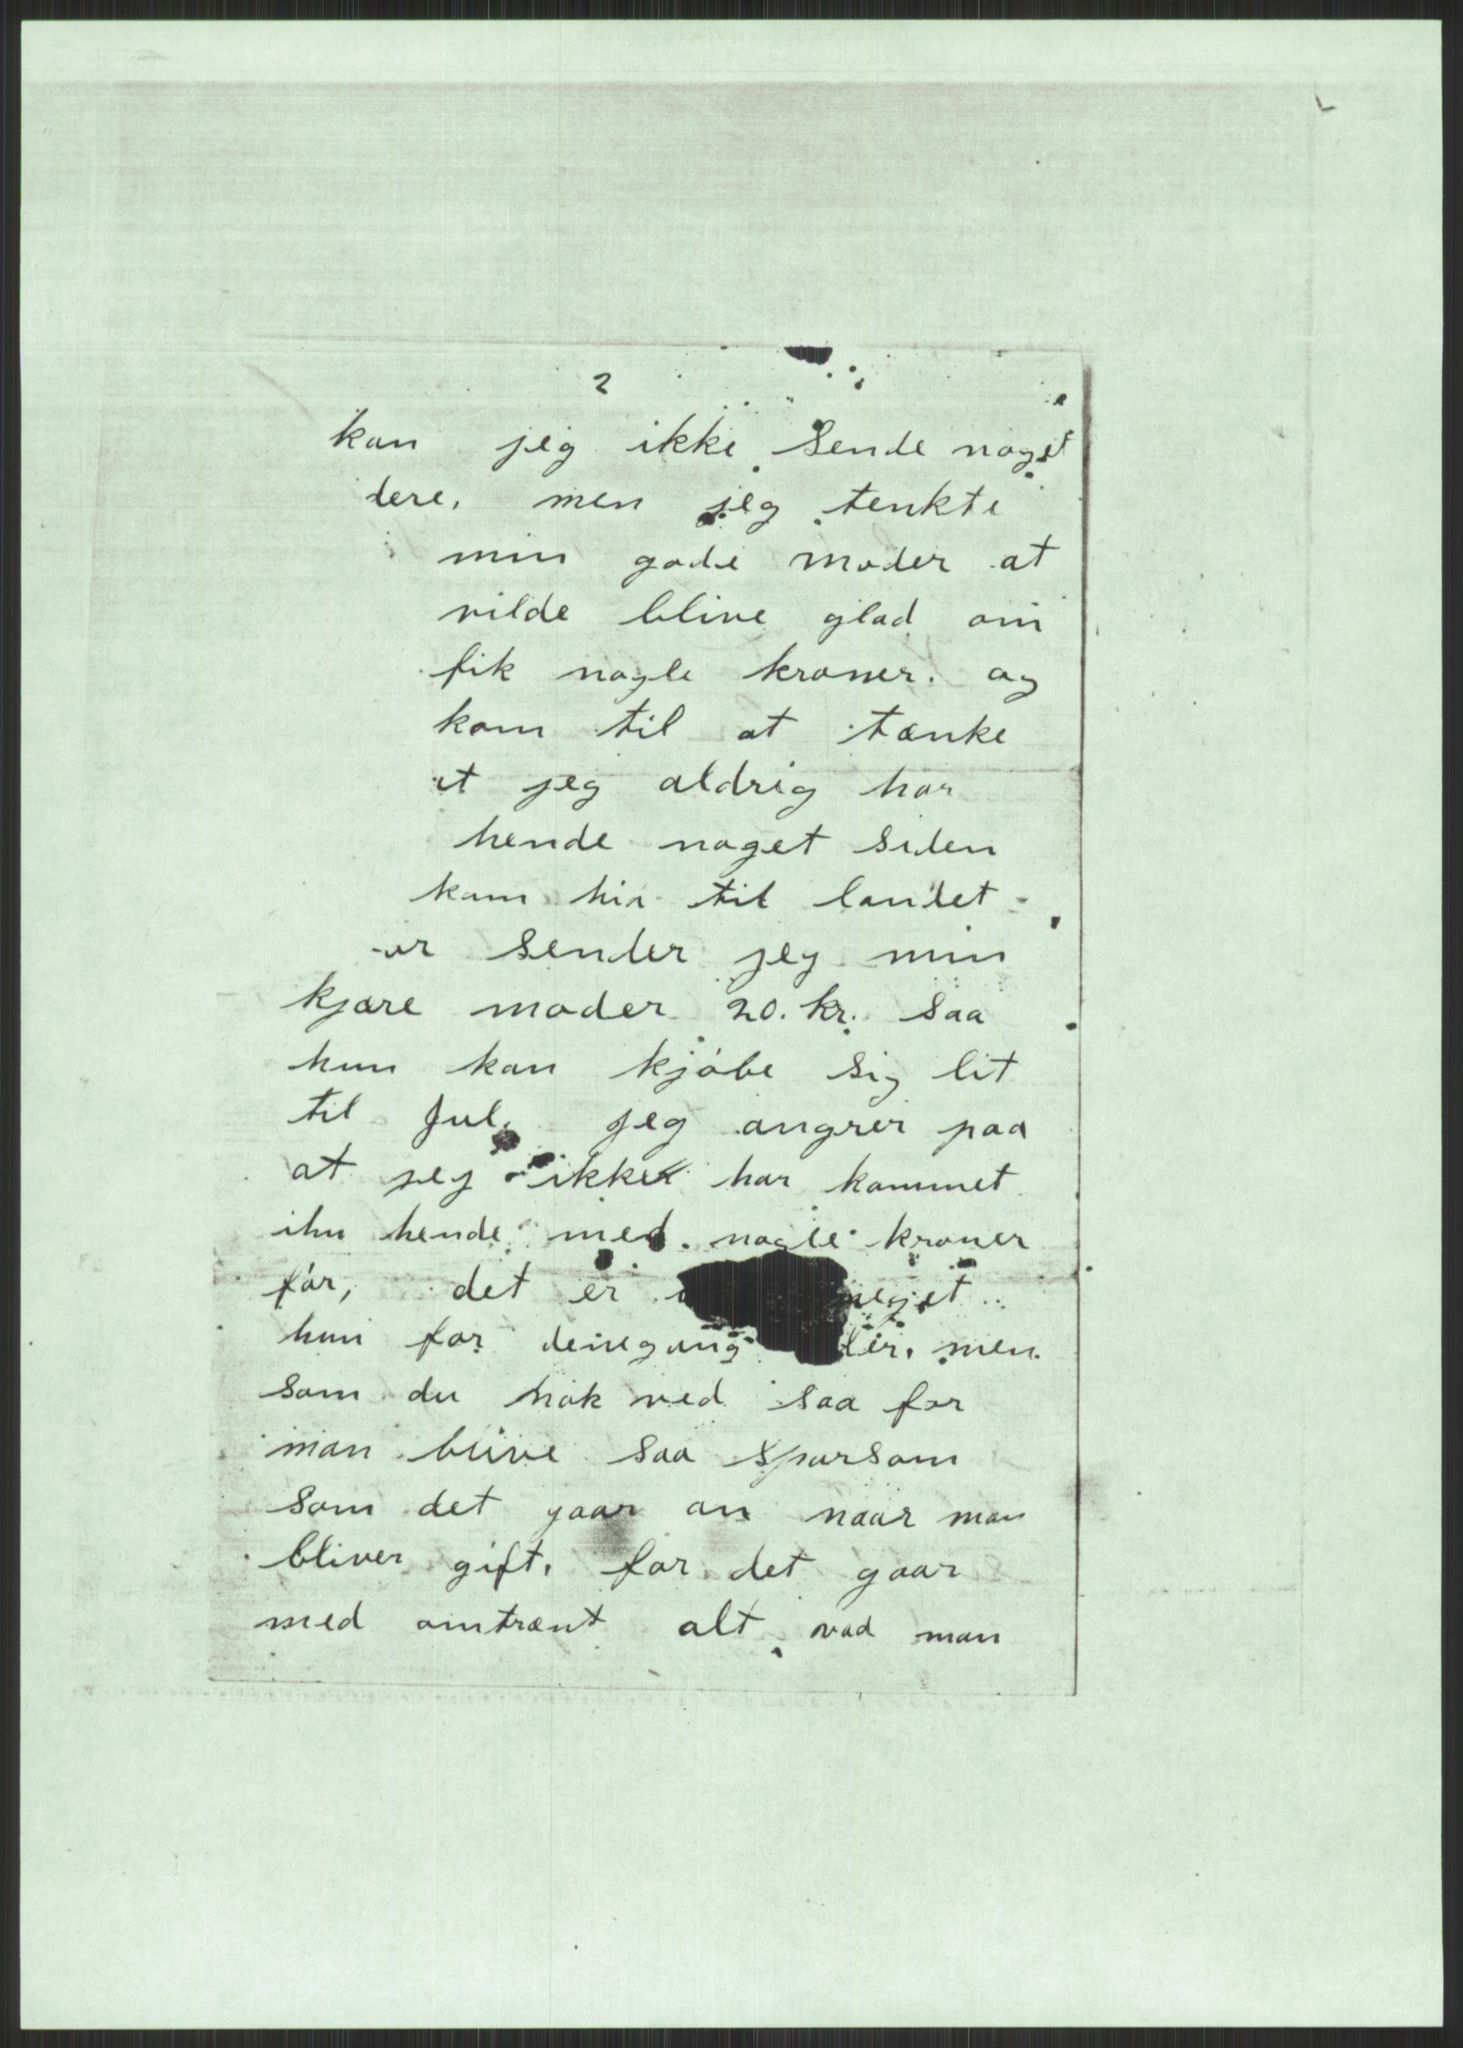 2
kan jeg ikke sende noget
dere, men jeg tenkte
min gode moder at
vilde blive glad om
fik nogle kroner. og
kom til at tænke
at jeg aldrig har
hende noget siden
kom hir til landet
sender jeg min
kjære moder 20. kr. saa
hun kan kjöbe sig lit
til Jul. jeg angrer paa
at jeg ikke har kommet
ihu hende med nogle kroner
för, det er meget
hun for denegang men
som du nok ved saa for
man blive saa sparsom
som det gaar an naar man
bliver gift, for det gaar
med omtrænt alt vad man